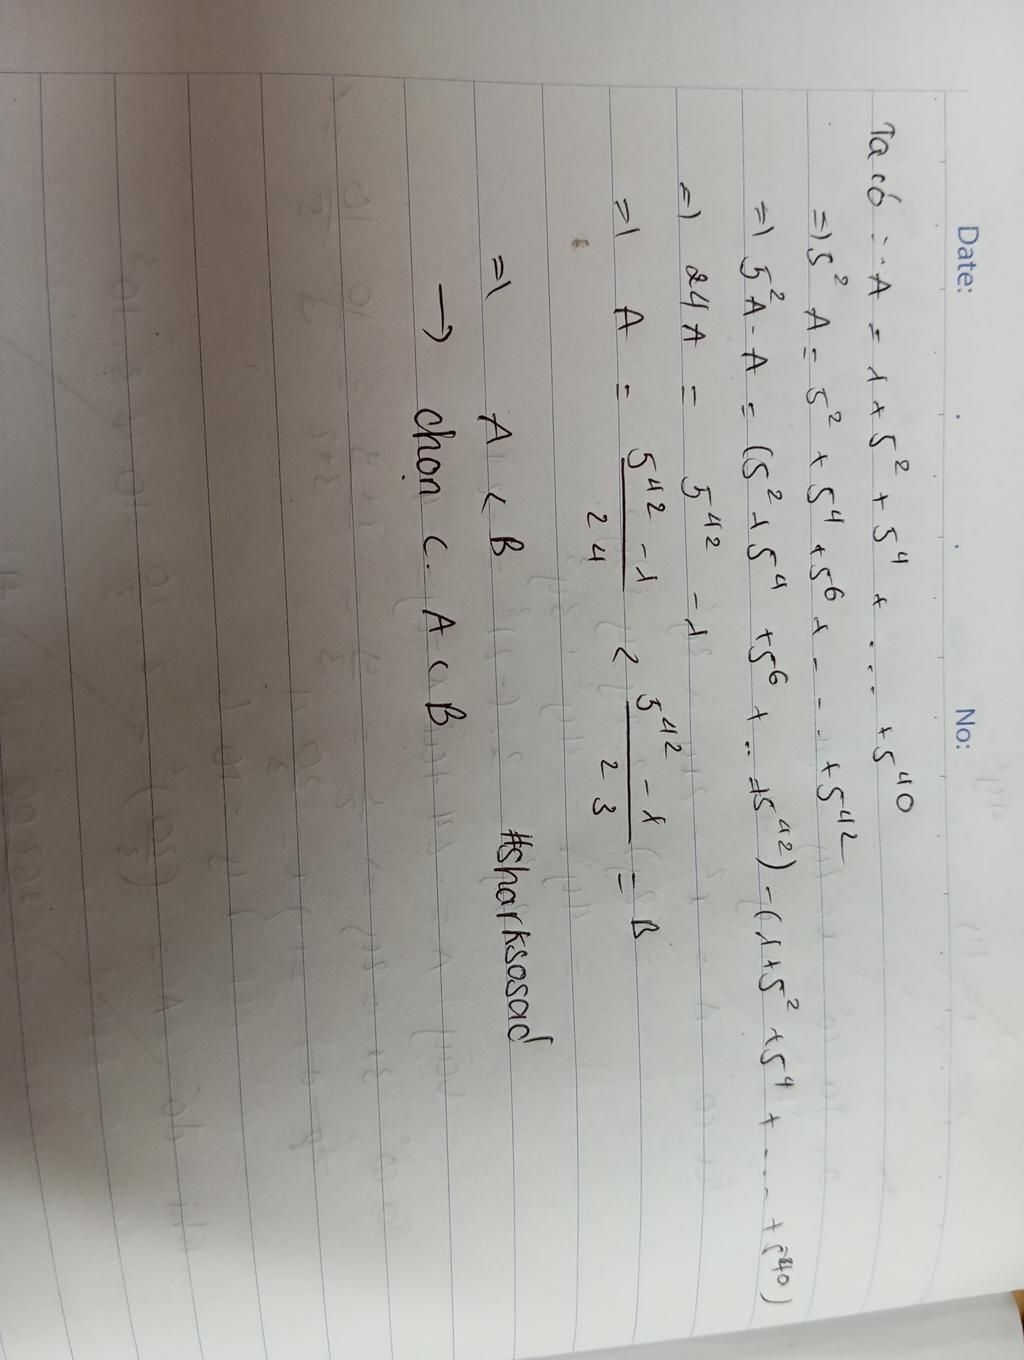 Date: No:
Ta có : A = 1 + 5² + 5⁴ + ... + 5⁴⁰
=) 5² A = 5² + 5⁴ + 5⁶ + ... + 5⁴²
=) 5² A - A = (5² + 5⁴ + 5⁶ + .. + 5⁴²) - (1 + 5² + 5⁴ + ... + 5⁴⁰)
=) 24 A = 5⁴² - 1
=) A = (5⁴² - 1)/24 < (5⁴² - 1)/23 = B
=) A < B #sharksosad
→ chọn C. A < B